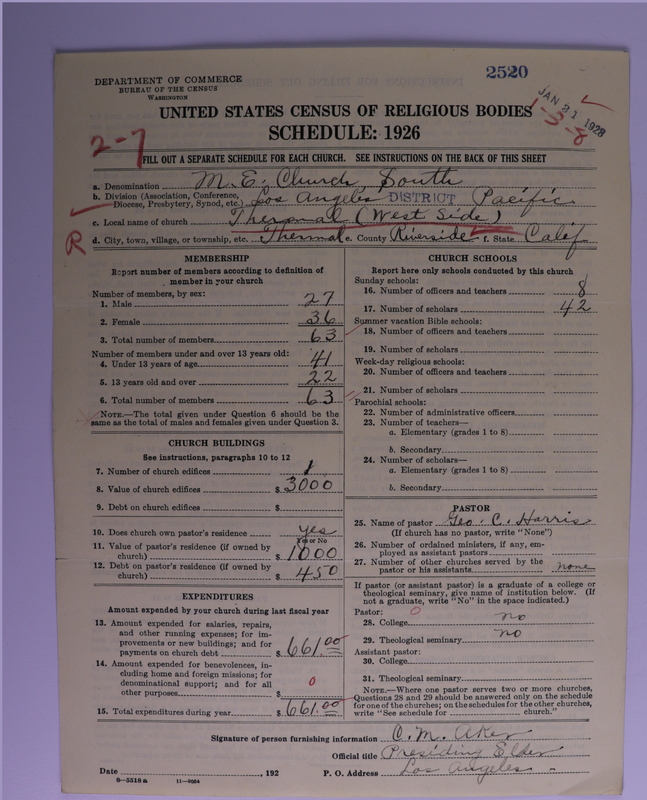 2520
DEPARTMENT OF COMMERCE
BUREAU OF THE CENSUS
WASHINGTON
JAN 31 1928
1-3-8
UNITED STATES CENSUS OF RELIGIOUS BODIES
SCHEDULE: 1926
2-7
FILL OUT A SEPARATE SCHEDULE FOR EACH CHURCH. SEE INSTRUCTIONS ON THE BACK OF THIS SHEET
a. Denomination M. E. Church South
b. Division (Association, Conference, Diocese, Presbytery, Synod, etc.) Los Angeles DISTRICT Pacific
c. Local name of church Thermal (West Side)
R
d. City, town, village, or township, etc. Thermal e. County Riverside f. State Calif.
MEMBERSHIP
Report number of members according to definition of
member in your church
Number of members, by sex:
1. Male 27
2. Female 36
3. Total number of members 63
Number of members under and over 13 years old:
4. Under 13 years of age 41
5. 13 years old and over 22
6. Total number of members 63
NOTE.—The total given under Question 6 should be
same as the total of males and females given under Question 3.
CHURCH BUILDINGS
See instructions, paragraphs 10 to 12
7. Number of church edifices 1
8. Value of church edifices $ 3000
9. Debt on church edifices $
10. Does church own pastor's residence yes
Yes or No
11. Value of pastor's residence (if owned by
church) $ 1000
12. Debt on pastor's residence (if owned by
church) $ 450
EXPENDITURES
Amount expended by your church during last fiscal year
13. Amount expended for salaries, repairs,
and other running expenses; for im-
provements or new buildings; and for
payments on church debt $ 661.00
14. Amount expended for benevolences, in-
cluding home and foreign missions; for
denominational support; and for all
other purposes $ 0
15. Total expenditures during year $ 661.00
CHURCH SCHOOLS
Report here only schools conducted by this church
Sunday schools:
16. Number of officers and teachers 8
17. Number of scholars 42
Summer vacation Bible schools:
18. Number of officers and teachers
19. Number of scholars
Week-day religious schools:
20. Number of officers and teachers
21. Number of scholars
Parochial schools:
22. Number of administrative officers
23. Number of teachers—
a. Elementary (grades 1 to 8)
b. Secondary
24. Number of scholars—
a. Elementary (grades 1 to 8)
b. Secondary
PASTOR
25. Name of pastor Geo. C. Harris
(If church has no pastor, write "None")
26. Number of ordained ministers, if any, em-
ployed as assistant pastors
27. Number of other churches served by the
pastor or his assistants none
If pastor (or assistant pastor) is a graduate of a college or
theological seminary, give name of institution below. (If
not a graduate, write "No" in the space indicated.)
Pastor: 0
28. College no
29. Theological seminary no
Assistant pastor:
30. College
31. Theological seminary
NOTE.—Where one pastor serves two or more churches,
Questions 28 and 29 should be answered only on the schedule
for one of the churches; on the schedules for the other churches,
write "See schedule for church."
Signature of person furnishing information C. M. Aker
Official title Presiding Elder
Date , 192 P. O. Address Los Angeles
8—5518a 11—9064